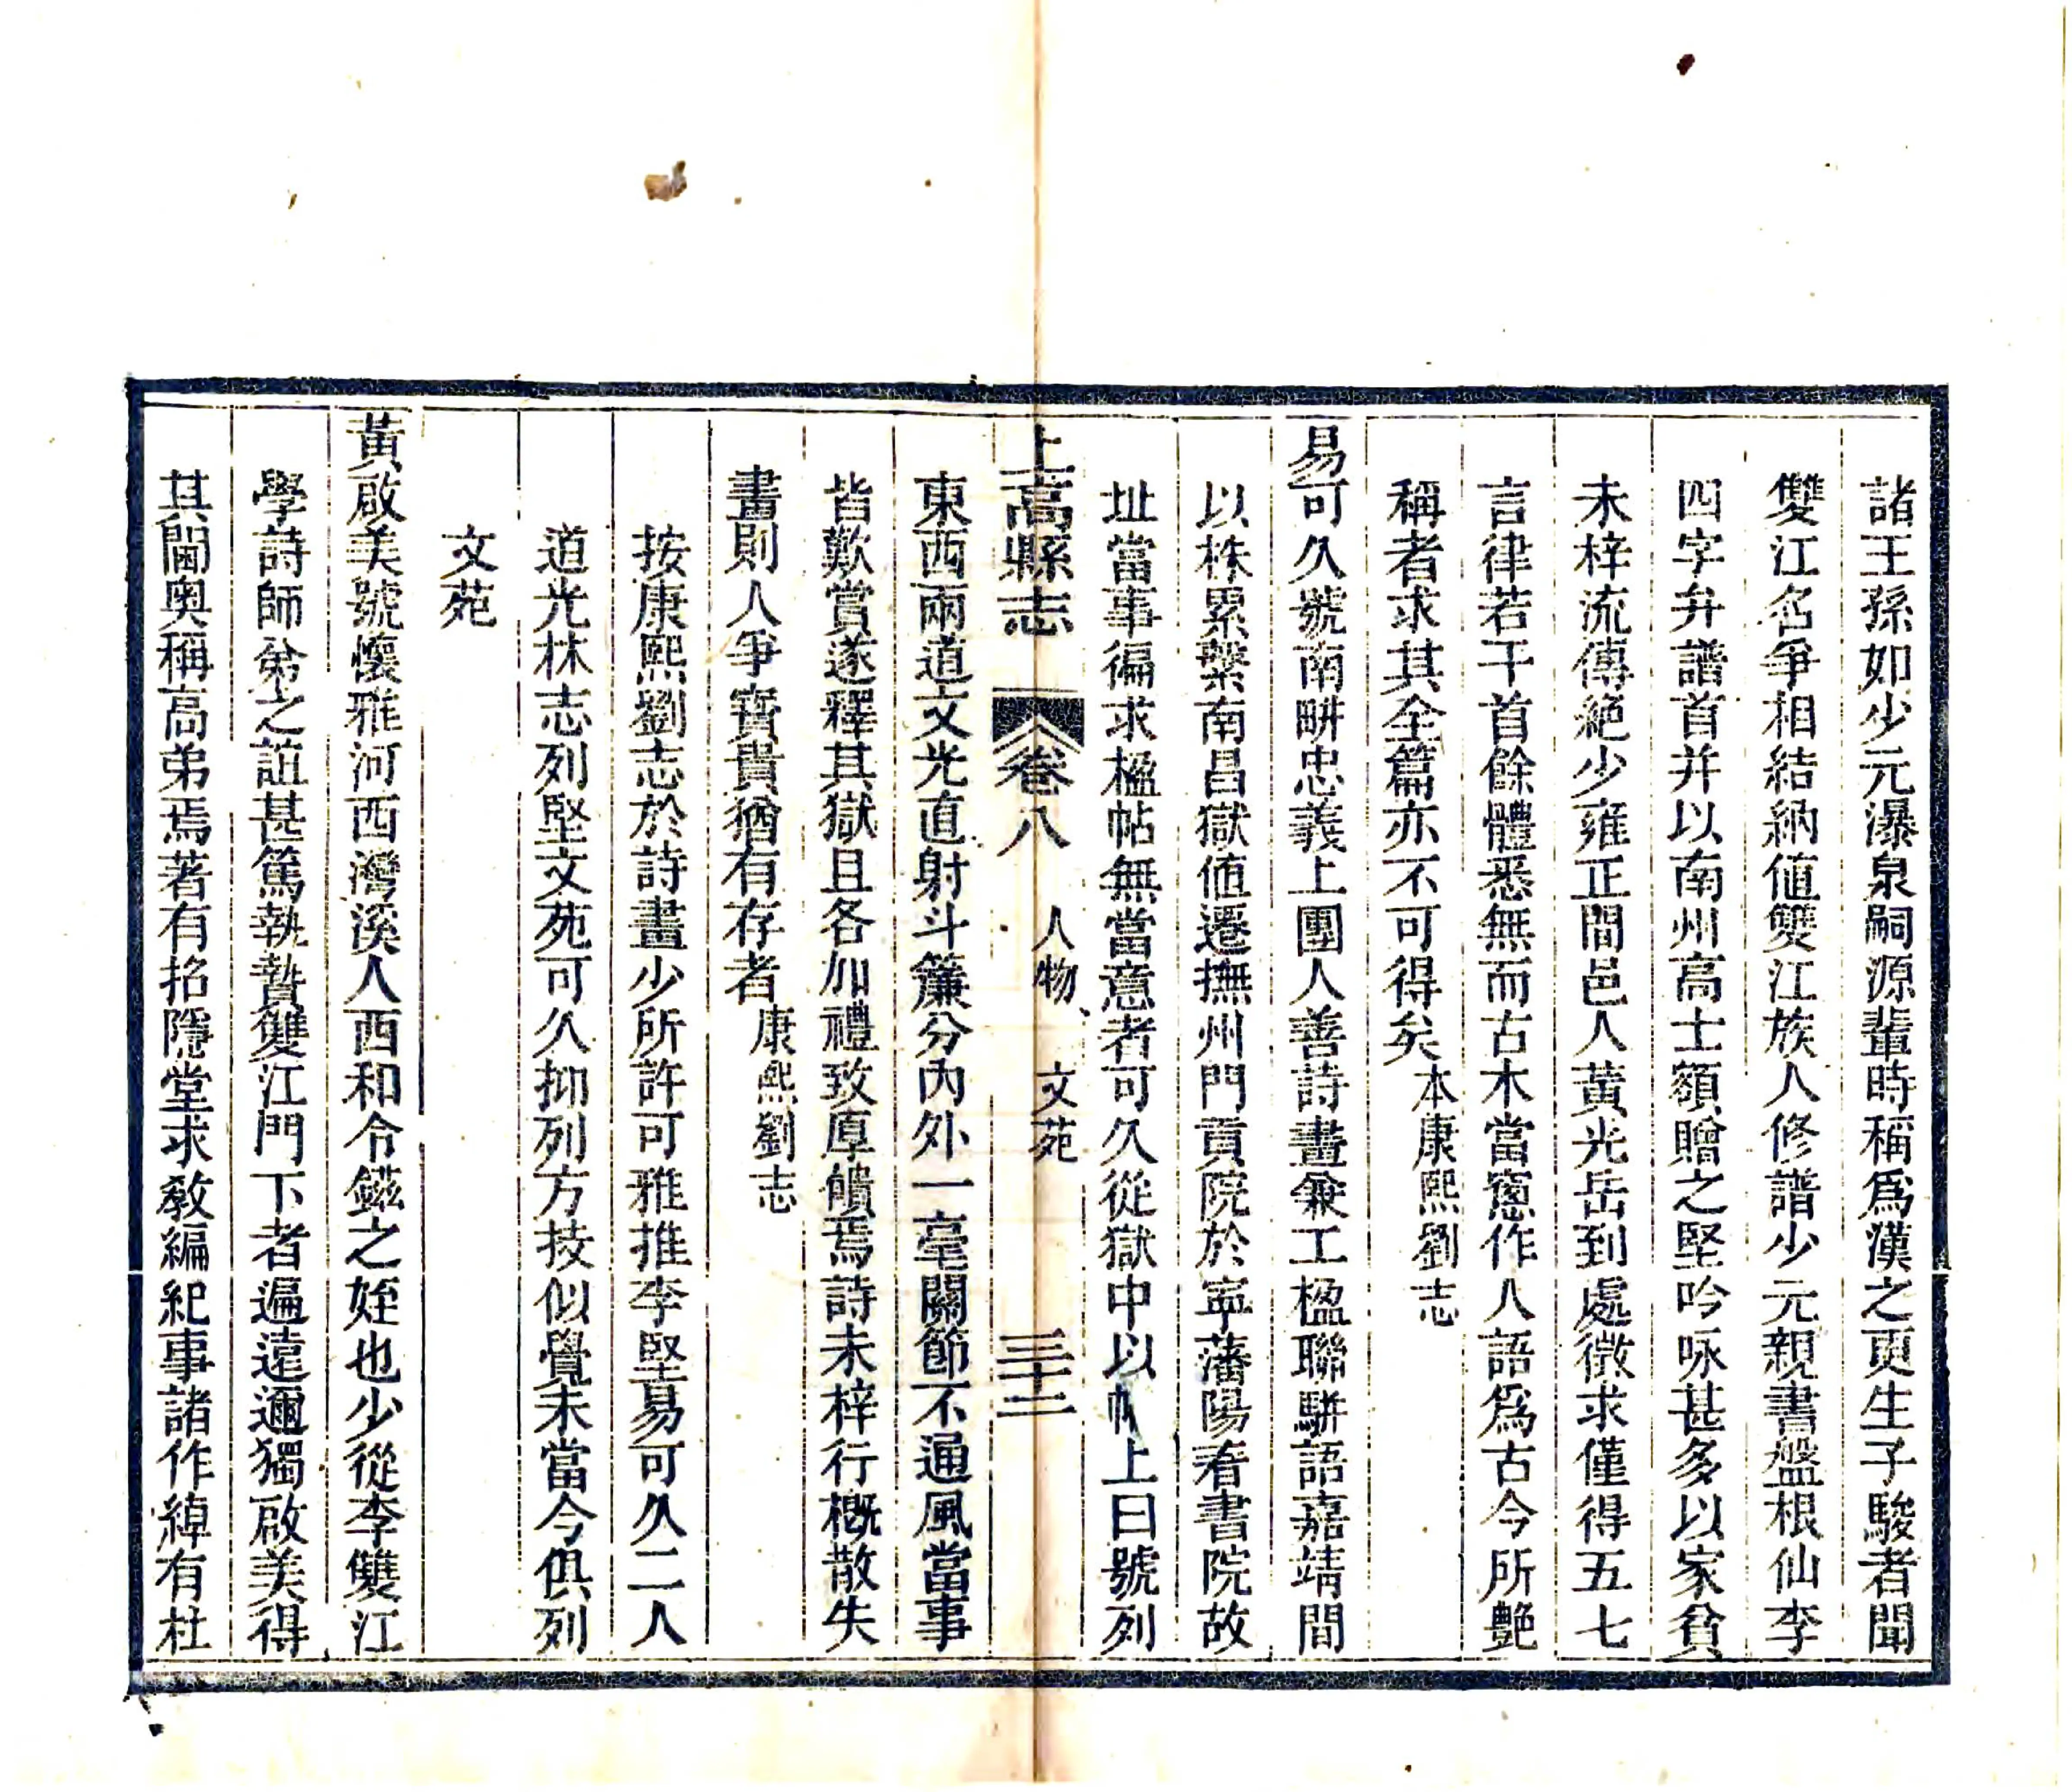 諸王孫如少元瀑泉嗣源輩時稱爲漢之更生子駿者聞
雙江名爭相結納値雙江族人修譜少元親書盤根仙李
四字弁譜首并以南州高士額贈之堅吟咏甚多以家貧
未梓流傳絕少雍正間邑人黃光岳到處徵求僅得五七
言律若干首餘體悉無而古木當窻作人語爲古今所艷
稱者求其全篇亦不可得矣本康熙劉志
易可久號南畊忠義上團人善詩畫兼工楹聯駢語嘉靖間
以株累繫南昌獄値遷撫州門貢院於寧藩陽春書院故
址當事徧求楹帖無當意者可久從獄中以帖上曰號列
上高縣志 卷八 人物、文苑 三十二
東西兩道文光直射斗簾分內外一毫關節不通風當事
皆歎賞遂釋其獄且各加禮致厚饋焉詩未梓行槪散失
畫則人爭寶貴猶有存者康熙劉志
按康熙劉志於詩畫少所許可雅推李堅易可久二人
道光林志列堅文苑可久抑列方技似覺未當今俱列
文苑
黃啟美號懷雅河西灣溪人西和令鎡之姪也少從李雙江
學詩師弟之誼甚篤執贄雙江門下者遍遠邇獨啟美得
其閫奧稱高弟焉著有招隱堂求敎編紀事諸作綽有杜